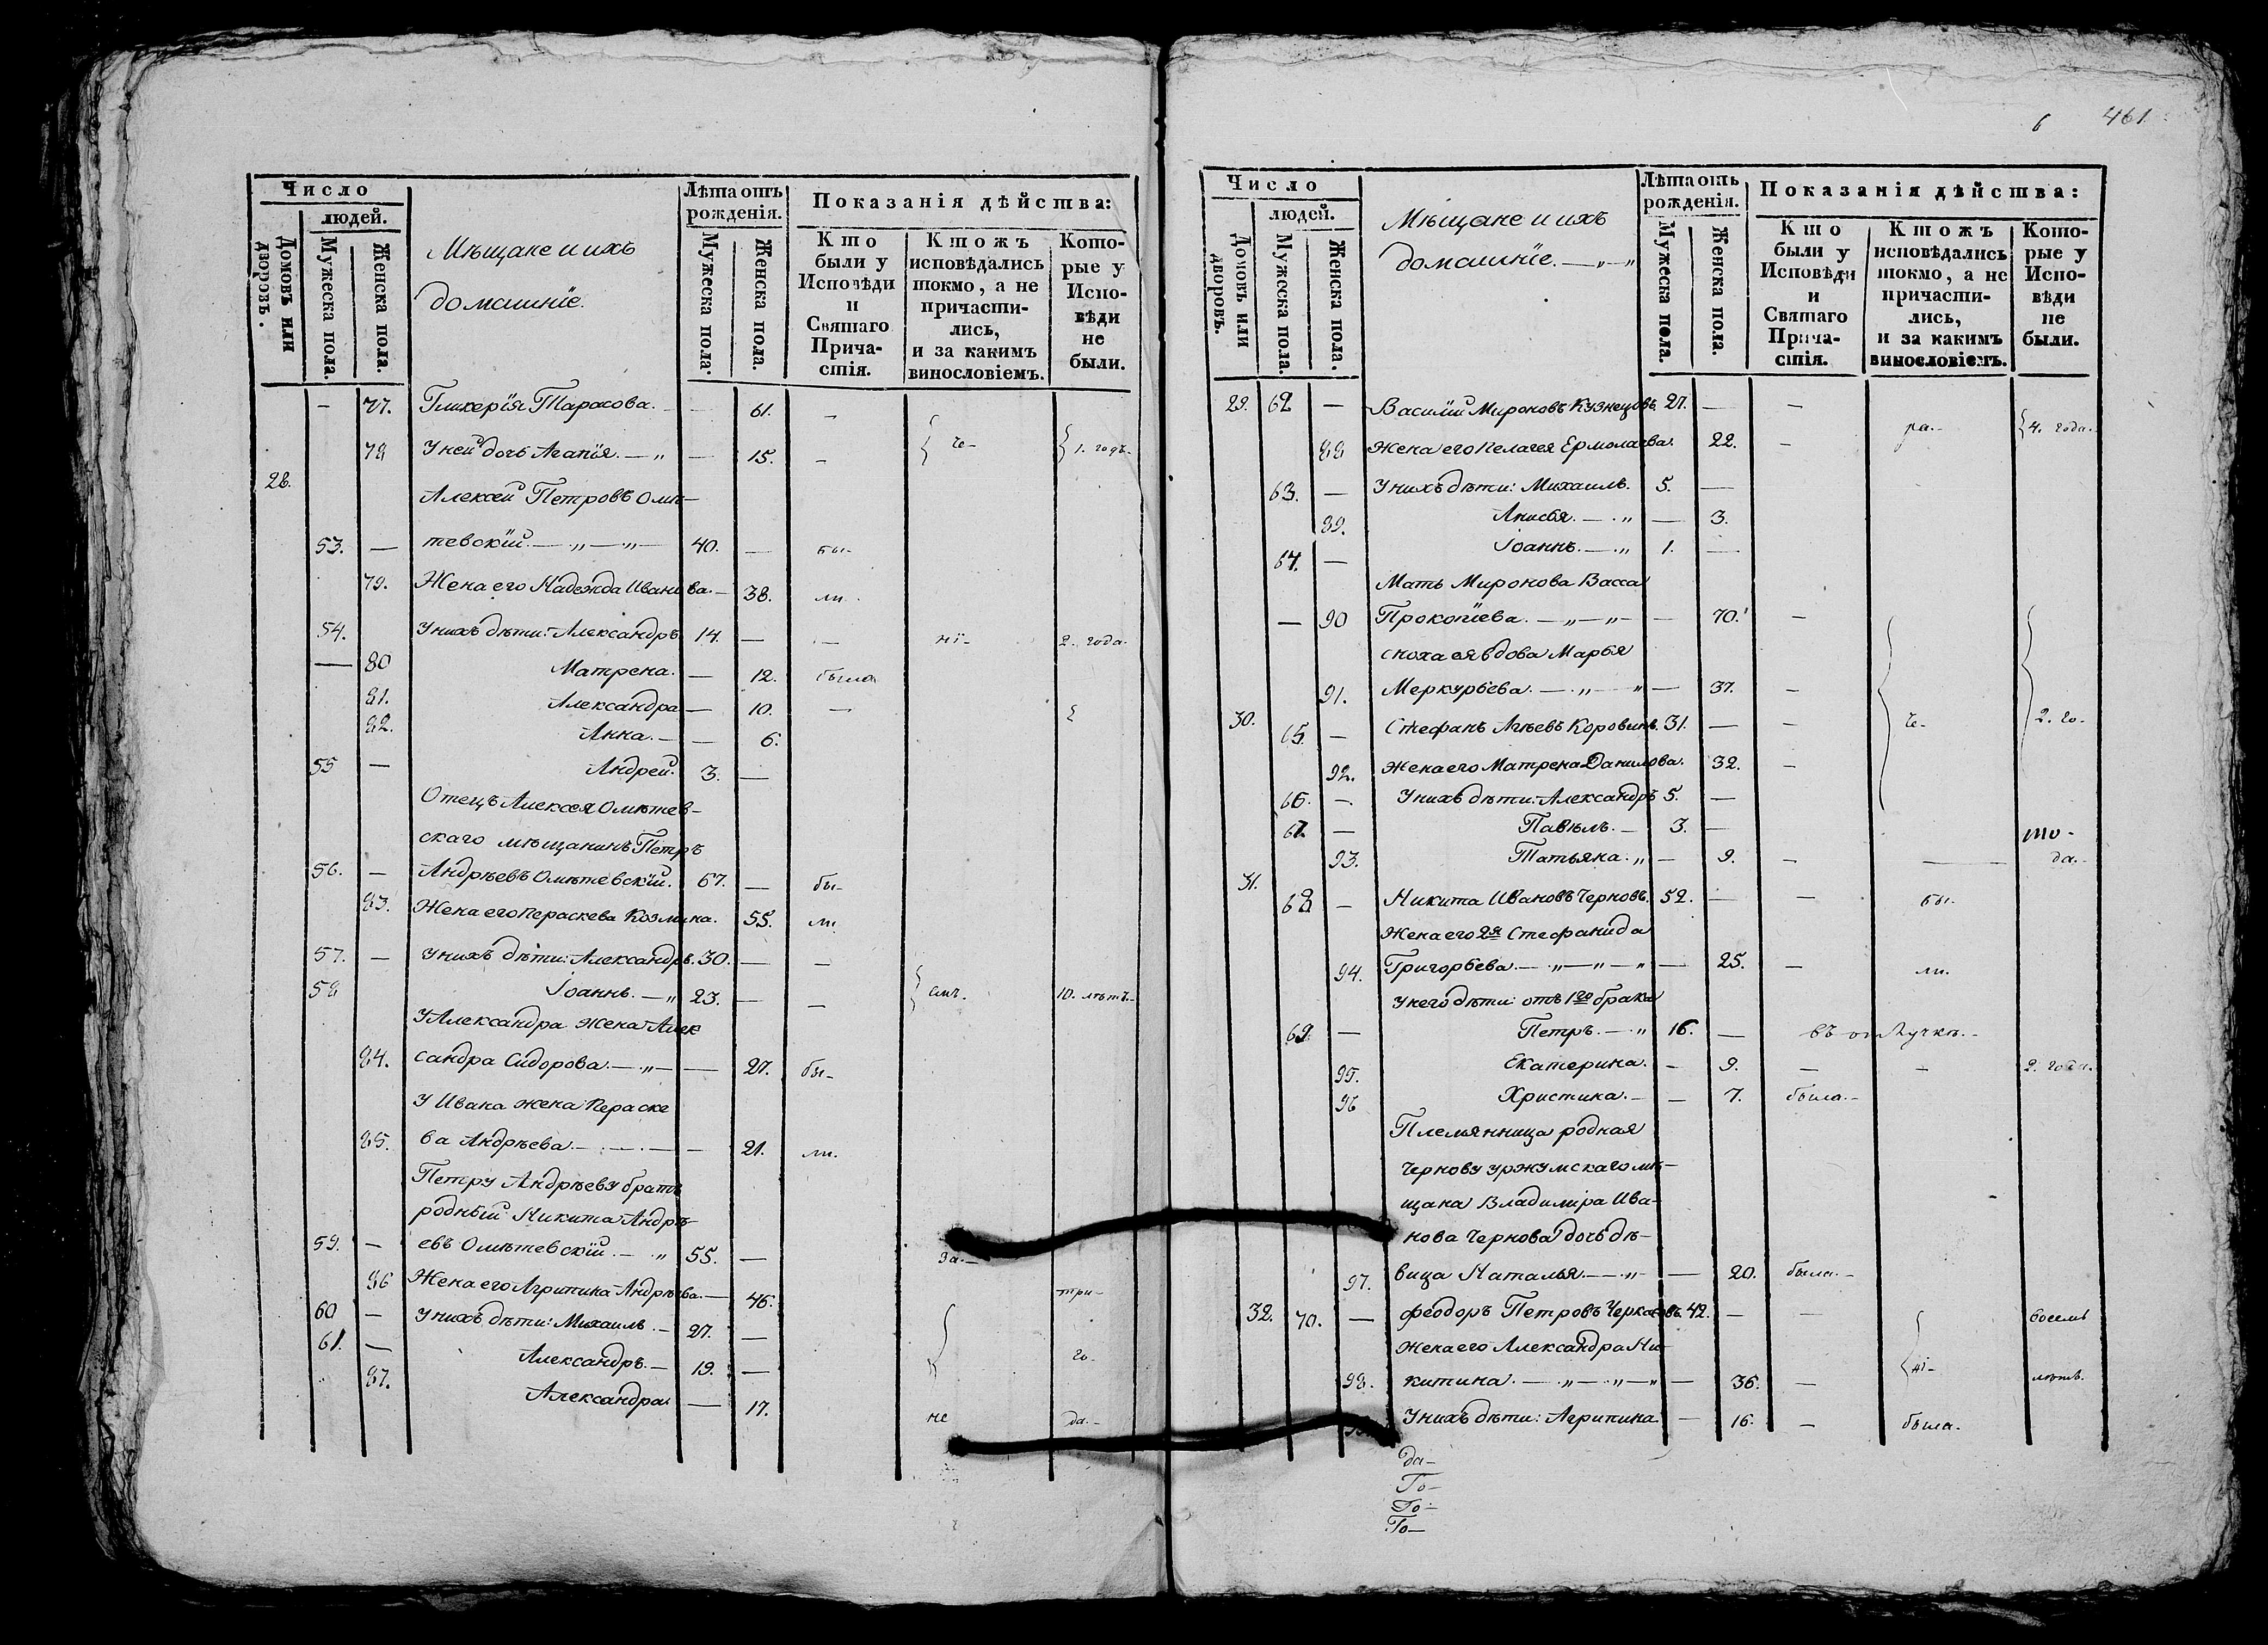 Число
людей.
Домовъ или дворовъ.
Мужеска пола.
Женска пола.
Мѣщане и ихъ
домашніе.
Лѣта отъ
рожденія.
Мужеска пола.
Женска пола.
Показанія дѣйства:
Кто
были у
Исповѣди
и
Святаго
Прича-
стія.
Ктожъ
исповѣдались
токмо, а не
причасти-
лись,
и за какимъ
винословіемъ.
Кото-
рые у
Испо-
вѣди
не
были.
— 77. Гликерія Тарасова. — 61. —
78 У ней дочь Агапія. — „ — 15. — че- 1. годъ.
28. Алексей Петровъ Омѣ-
53. — тевскій. — „ — „ — 40. — бы-
79. Жена его Надежда Иванова. — 38. ли.
54. У нихъ дѣти: Александръ 14. — — ні- 2. года.
— 80 Матрена. — 12. была
81. Александра — 10. —
82. Анна. — — 6.
55 — Андрей. 3. —
Отецъ Алексея Омѣтев-
скаго мѣщанинъ Петръ
56. — Андрѣевъ Омѣтевскій. 67. — бы-
83. Жена его Пераскева Козмина. 55. ли
57. — У нихъ дѣти: Александръ. 30. — —
58 Іоаннъ. — „ 23. — — емъ. 10. лѣтъ.
У Александра жена Алек
84. сандра Сидорова. — „ — — 27. бы-
У Ивана жена Пераске
85. ва Андрѣева. — . — . — — 21. ли.
Петру Андрѣеву братъ
родный Никита Андрѣ-
59. — евъ Омѣтевскій. — „ 55. — за. —
86 Жена его Агрипина Андрѣева. — 46. три-
60 — У нихъ дѣти: Михаилъ. — 27. —
61. — Александръ. — 19. — го-
87. Александра. — 17. не да. -
6 461
Число
людей.
Домовъ или дворовъ.
Мужеска пола.
Женска пола.
Мѣщане и ихъ
домашніе. — „ — „
Лѣта отъ
рожденія.
Мужеска пола.
Женска пола.
Показанія дѣйства:
Кто
были у
Исповѣди
и
Святаго
Прича-
стія.
Ктожъ
исповѣдались
токмо, а не
причасти-
лись,
и за какимъ
винословіемъ.
Кото-
рые у
Испо-
вѣди
не
были.
29. 62 — Василій Мироновъ Кузнецовъ. 27. — — ра. - 4. года.
88 Жена его Пелагея Ермолаева. 22. —
63. — У нихъ дѣти: Михаилъ. 5. —
89. Анисья. — . „ — 3.
64. — Іоаннъ. — . „ 1. —
Мать Миронова Васса
— 90 Прокопіева. — „ — „ — — 70. —
сноха ея вдова Марья
91. Меркурьева. — . „ — „ — 37. —
30. 65. — Стефанъ Агѣевъ Коровинъ. 31. — — че- 2. го-
92. Жена его Матрена Данилова. 32. —
66. — У нихъ дѣти: Александръ 5. —
67. — Павелъ. — 3. — то-
93. Татьяна. „ — 9. — — да. -
31. 68 — Никита Ивановъ Черновъ. 52. — — бы-
Жена его 2я Стефанида
94. Григорьева. — „ — „ — „ — 25. — ли.
У него дѣти: отъ 1го брака
69. — Петръ. — „ 16. — въ отлучкѣ. -
95. Екатерина. — 9. — — 2. года.
96 Христина. — — 7. была. -
Племянница родная
Чернову уржумскаго мѣ-
щана Владиміра Ива-
нова Чернова дочь дѣ-
97. вица Наталья. — . „ — — 20. была. -
32. 70. — Феодоръ Петровъ Черкасовъ. 42. — — восемь
Жена его Александра Ни-
98. китина. — . „ — . „ — „ — 36. — ні- лѣтъ.
У нихъ дѣти: Агрипина. — 16. — была.
да-
Го-
Го-
То-